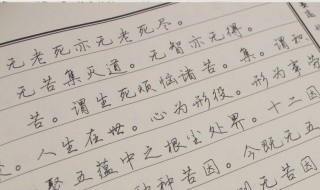 无老死亦无老死尽。
无苦集灭道。无智亦无得。
苦。谓生死烦恼诸苦。集。谓和
人生在世。心为形役。形为事劳
聚五蕴中之根尘处界。十二因
种苦因。今既无五
无苦因